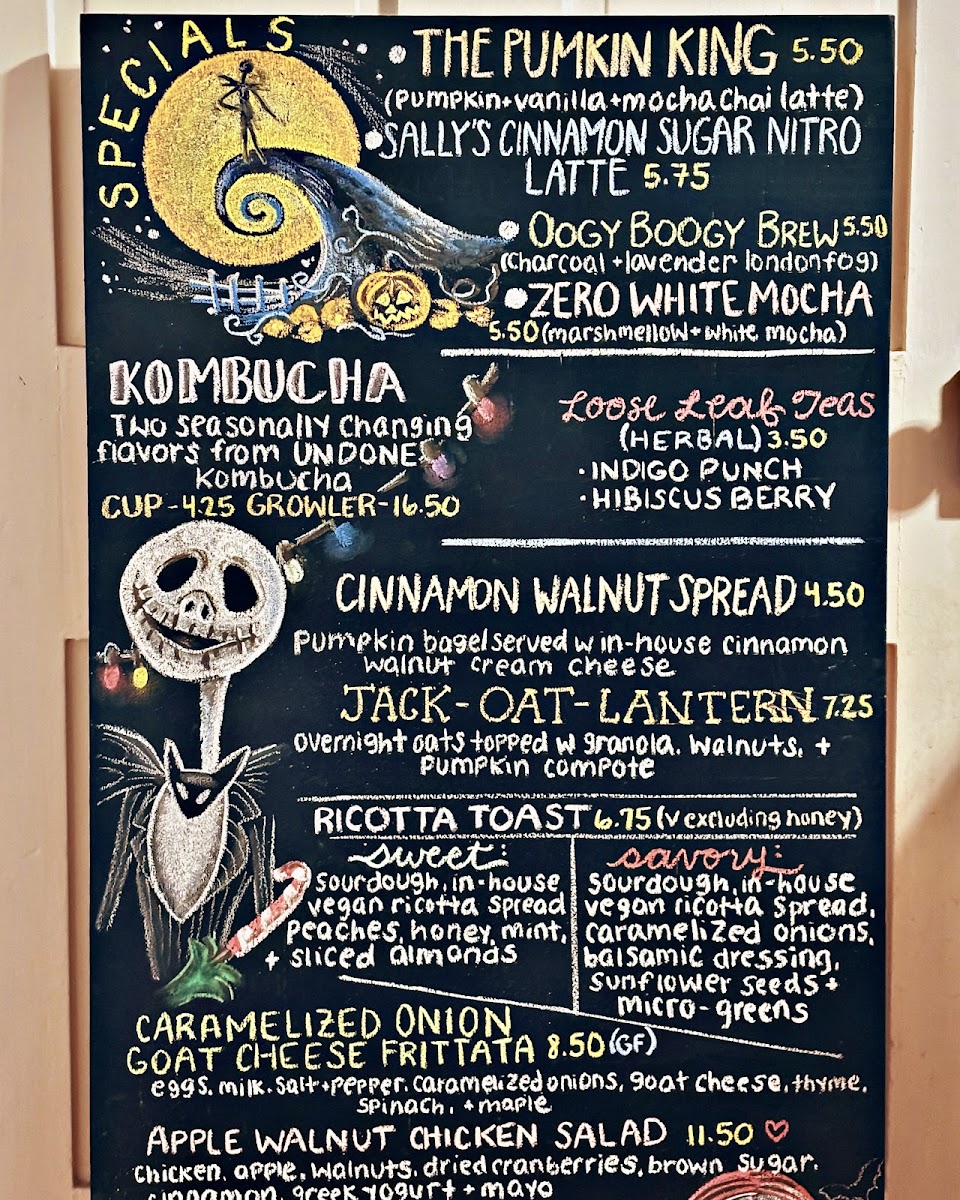 SPECIALS
THE PUMKIN KING 5.50
(pumpkin+vanilla+mocha chai latte)
SALLY'S CINNAMON SUGAR NITRO
LATTE 5.75
OOGY BOOGY BREW 5.50
(charcoal + lavender londonfog)
ZERO WHITE MOCHA
5.50 (marshmellow + white mocha)
KOMBUCHA
Two seasonally changing
flavors from UNDONE
Kombucha
CUP - 4.25 GROWLER - 16.50
Loose Leaf Teas
(HERBAL) 3.50
· INDIGO PUNCH
· HIBISCUS BERRY
CINNAMON WALNUT SPREAD 4.50
Pumpkin bagel served w in-house cinnamon
walnut cream cheese
JACK-OAT-LANTERN 7.25
overnight oats topped w granola, walnuts, +
pumpkin compote
RICOTTA TOAST 6.75 (v excluding honey)
sweet:
sourdough, in-house
vegan ricotta spread
peaches, honey, mint,
+ sliced almonds
savory:
sourdough, in-house
vegan ricotta spread,
caramelized onions,
balsamic dressing,
sunflower seeds +
micro-greens
CARAMELIZED ONION
GOAT CHEESE FRITTATA 8.50 (GF)
eggs, milk, salt+pepper, caramelized onions, goat cheese, thyme,
spinach, + maple
APPLE WALNUT CHICKEN SALAD 11.50 ♡
chicken, apple, walnuts, dried cranberries, brown sugar,
cinnamon, greek yogurt + mayo